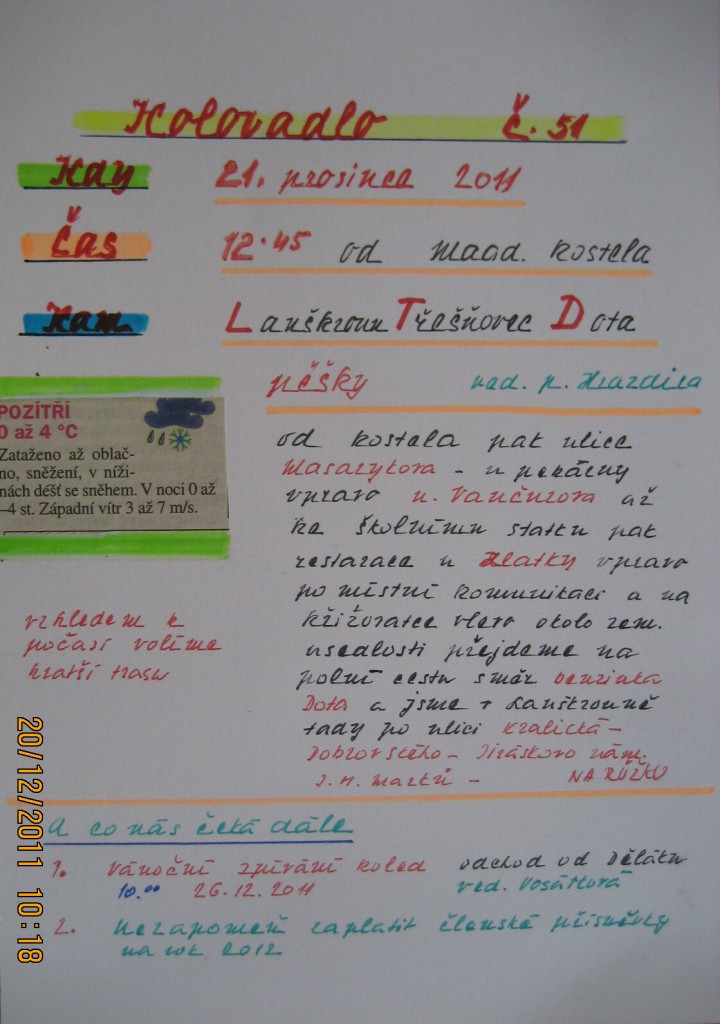 Kolovadlo č. 51
Kdy 21. prosince 2011
Čas 12.45 od maad. kostela
Kam Lanškroun Třešňovec Dota
pěšky ved. p. Hrazdira
POZÍTŘÍ
0 až 4 °C
Zataženo až oblač-
no, sněžení, v níži-
nách déšť se sněhem. V noci 0 až
–4 st. Západní vítr 3 až 7 m/s.
vzhledem k
počasí volíme
kratší trasu
od kostela pak ulice
Masarykova - u pekárny
vpravo u. Vančurova až
ke školnímu statku pak
restarace u Zlatky vpravo
po místní komunikaci a na
křižovatce vlevo okolo zem.
usedlosti přejdeme na
polní cestu směr benzinka
Dota a jsme v Lanškrouně
tady po ulici Kralická -
Dobrovského - Jiráskovo nám.
J. M. Marků - NA RŮŽKU
A co nás čeká dále
1. Vánoční zpívání koled odchod od Dělátu
10.00 26.12.2011 ved. Vosáttová
2. Nezapomeň zaplatit členské příspěvky
na rok 2012
20/12/2011 10:18